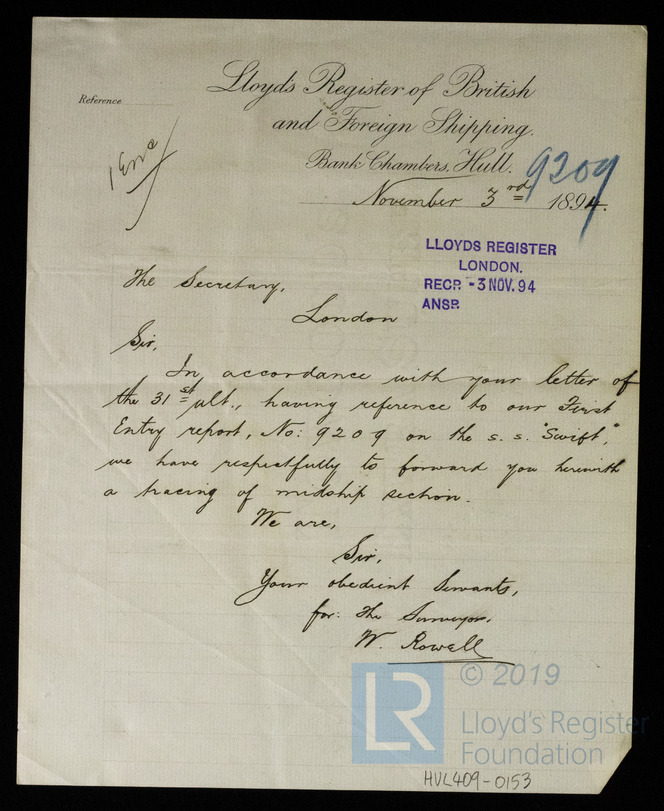 Lloyd's Register of British
and Foreign Shipping.
Reference
Bank Chambers, Hull.
1 Enc
9209
November 3rd 1894.
LLOYDS REGISTER
LONDON.
RECP. -3 NOV. 94
ANSP.
The Secretary,
London
Sir,
In accordance with your letter of
the 31st ult., having reference to our First
Entry report, No: 9209 on the s.s. "Swift,"
we have respectfully to forward you herewith
a tracing of midship section.
We are,
Sir,
Your obedient Servants,
for: the Surveyor,
W. Rowell
© 2019
LR
Lloyd's Register
Foundation
HUL409-0153